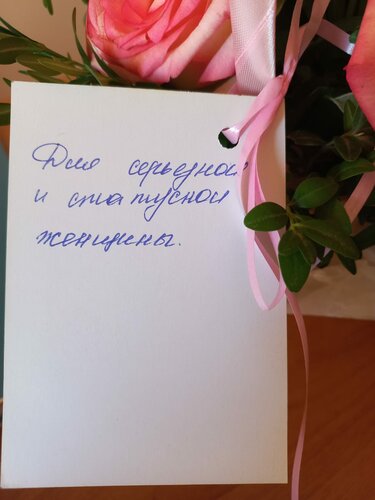 Для серьезной
и статусной
женщины.